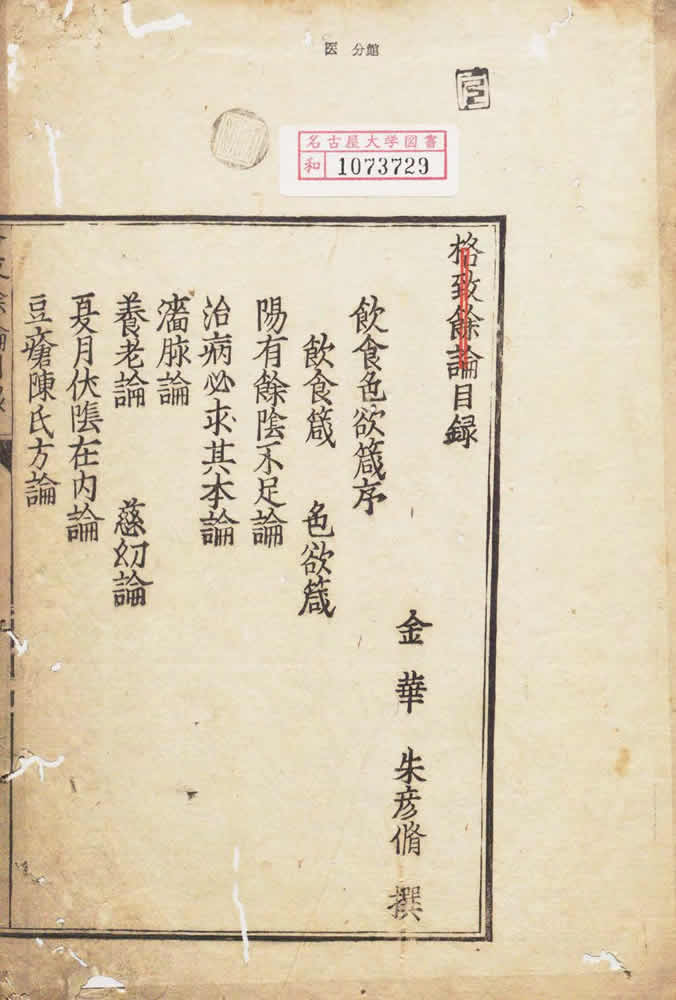 医 分館
名古屋大学図書
和 1073729
格致餘論目録
金華 朱彦脩 撰
飲食色欲箴序
飲食箴 色欲箴
陽有餘陰不足論
治病必求其本論
濇脉論
養老論 慈幼論
夏月伏陰在内論
豆瘡陳氏方論